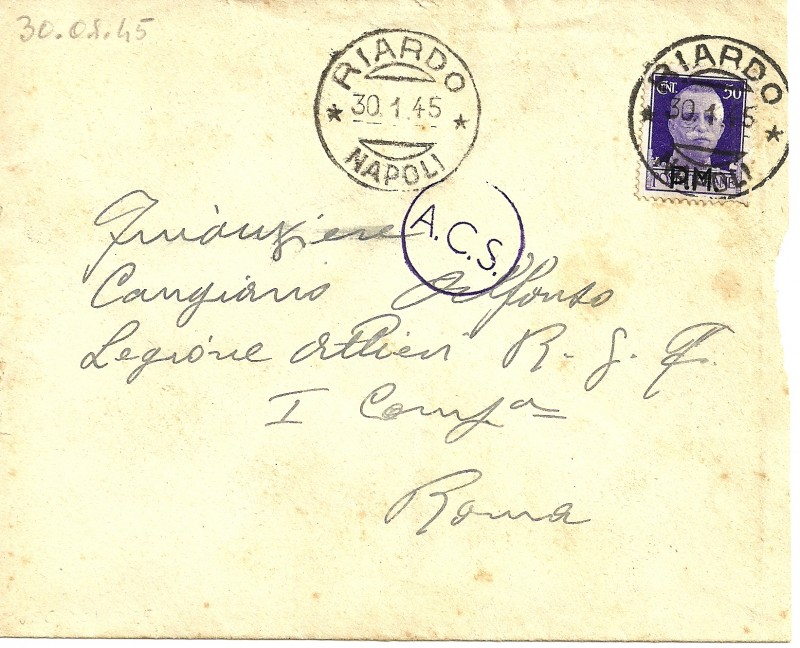 30.01.45
RIARDO
30.1.45
NAPOLI
RIARDO
30.1.45
NAPOLI
CENT. 50
P.M.
A.C.S.
Finanziere
Cangiano Alfonso
Legione Allievi R. G. F.
I Comp.a
Roma